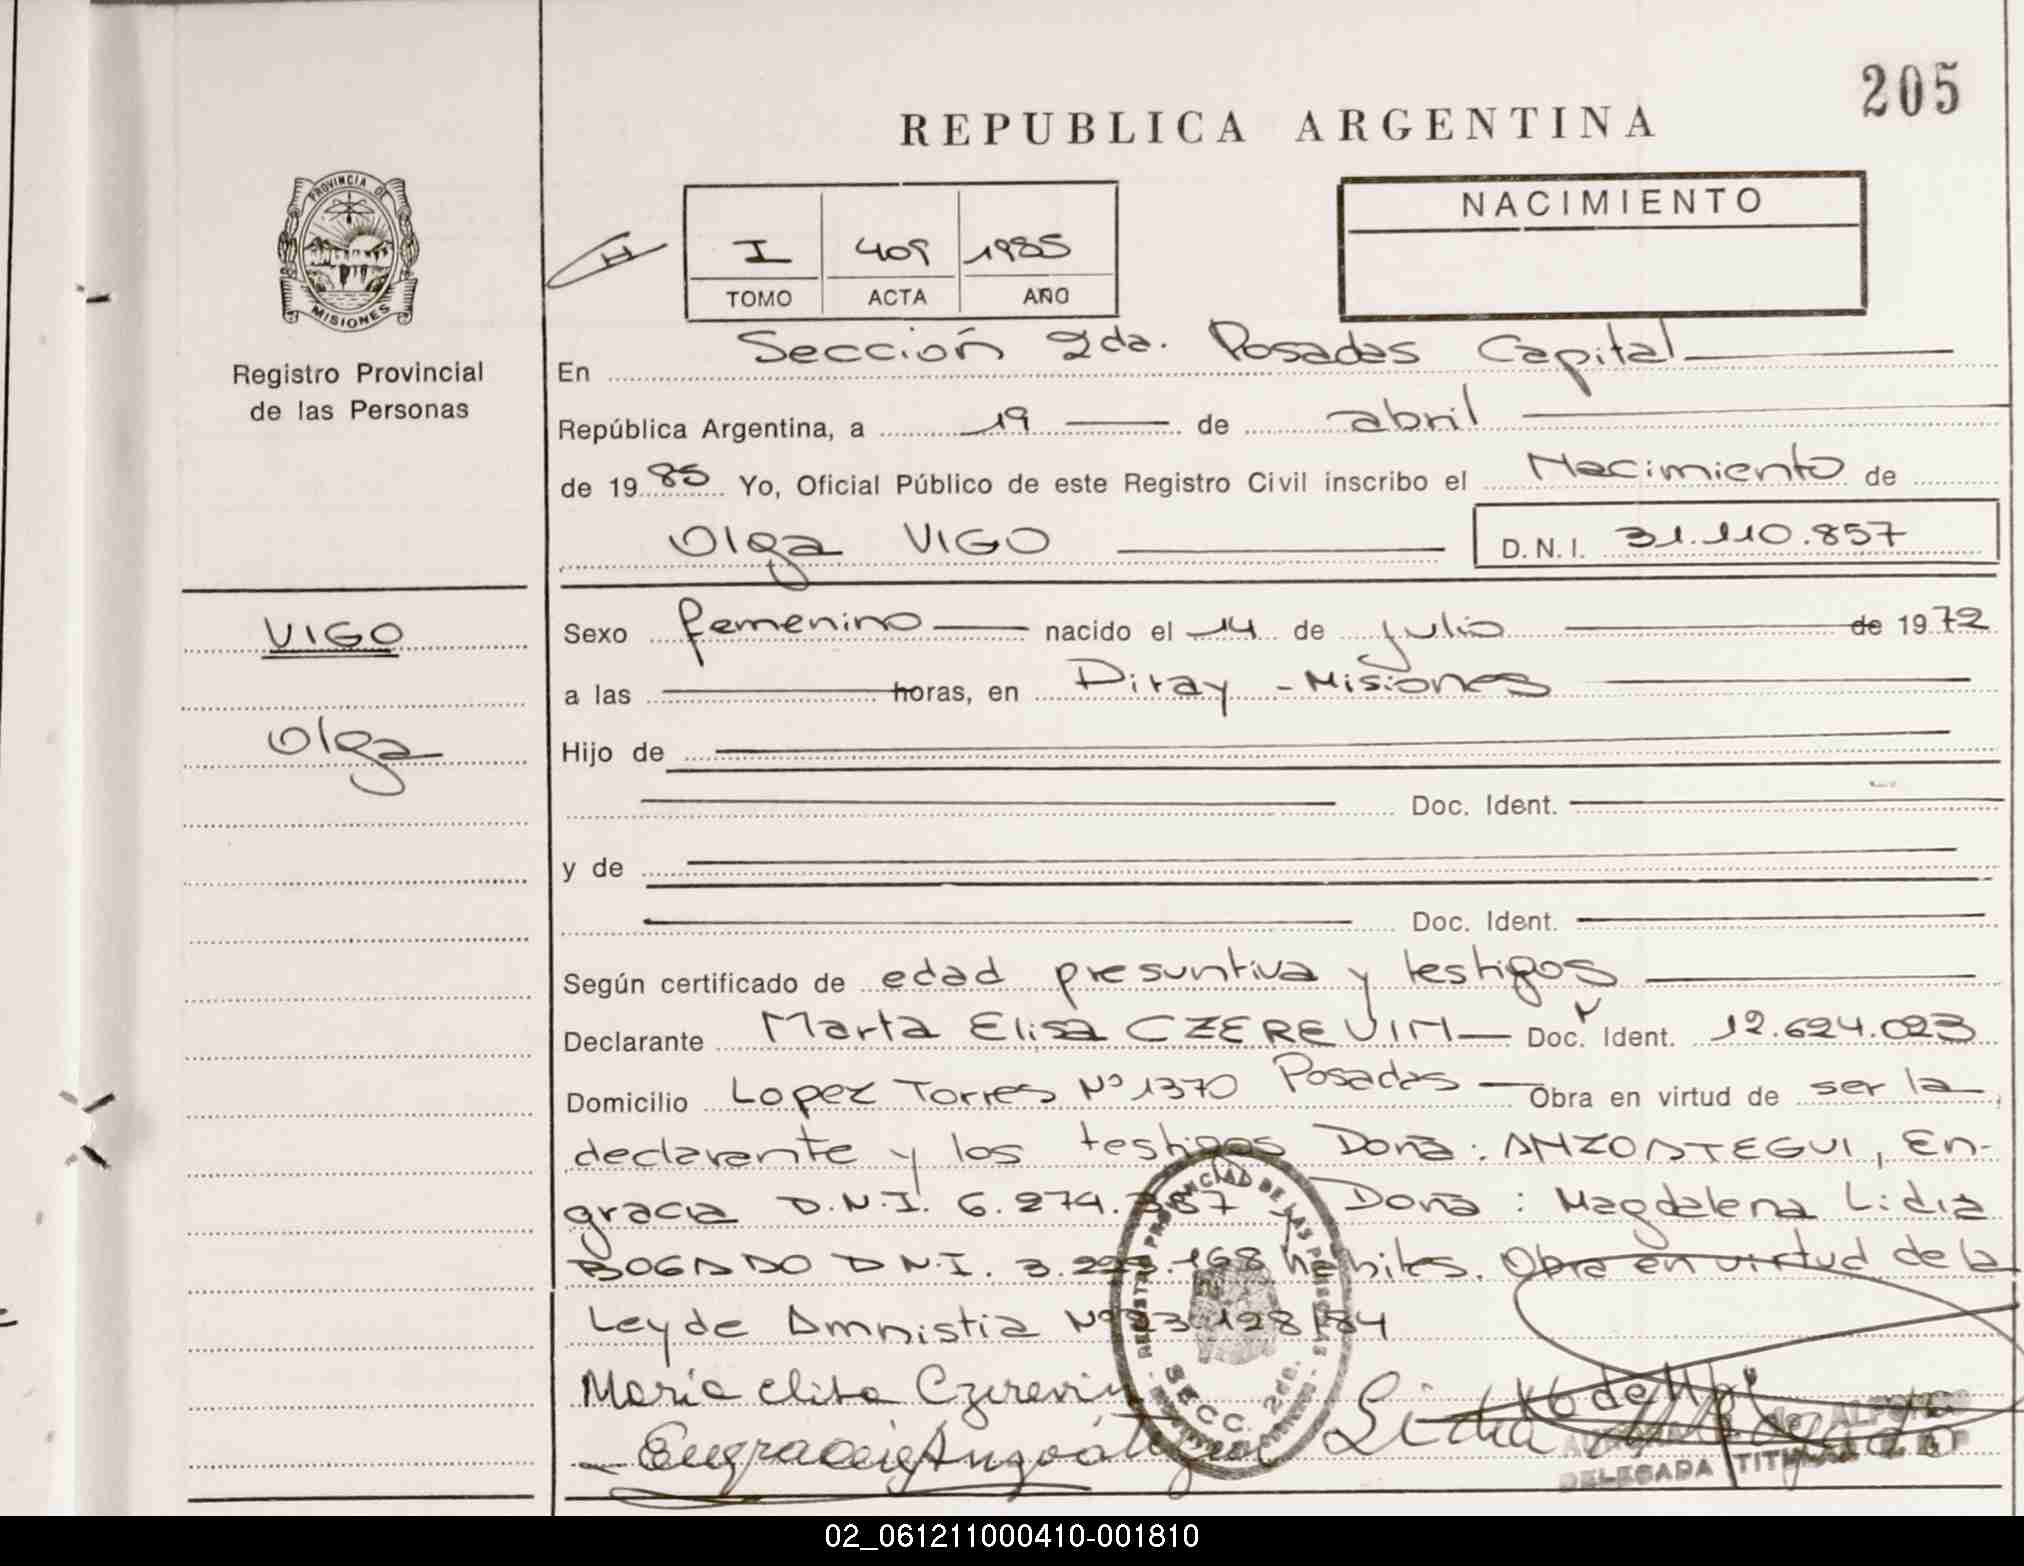 205
REPUBLICA ARGENTINA
PROVINCIA DE
MISIONES
Registro Provincial
de las Personas
I 409 1985
TOMO ACTA AÑO
NACIMIENTO
En Sección 2da. Posadas Capital
República Argentina, a 19 de abril
de 1985 Yo, Oficial Público de este Registro Civil inscribo el Nacimiento de
Olga VIGO D.N.I. 31.110.857
VIGO
Olga
Sexo femenino nacido el 14 de julio de 1972
a las horas, en Diray - Misiones
Hijo de
Doc. Ident.
y de
Doc. Ident.
Según certificado de edad presuntiva y testigos
Declarante Marta Elisa CZEREVIN Doc. Ident. 12.624.023
Domicilio Lopez Torres Nº 1370 Posadas Obra en virtud de ser la
declarante y los testigos Doña: ANZOATEGUI, En-
gracia D.N.I. 6.274. y Doña: Magdalena Lidia
BOGADO D.N.I. 3. .168 hábiles. Obra en virtud de la
Ley de Amnistia Nº 23.128/84
Maria elisa Czerevin
Engracia Anzoátegui Lidia
SECC. 2da.
DELEGADA TITULAR
02_061211000410-001810